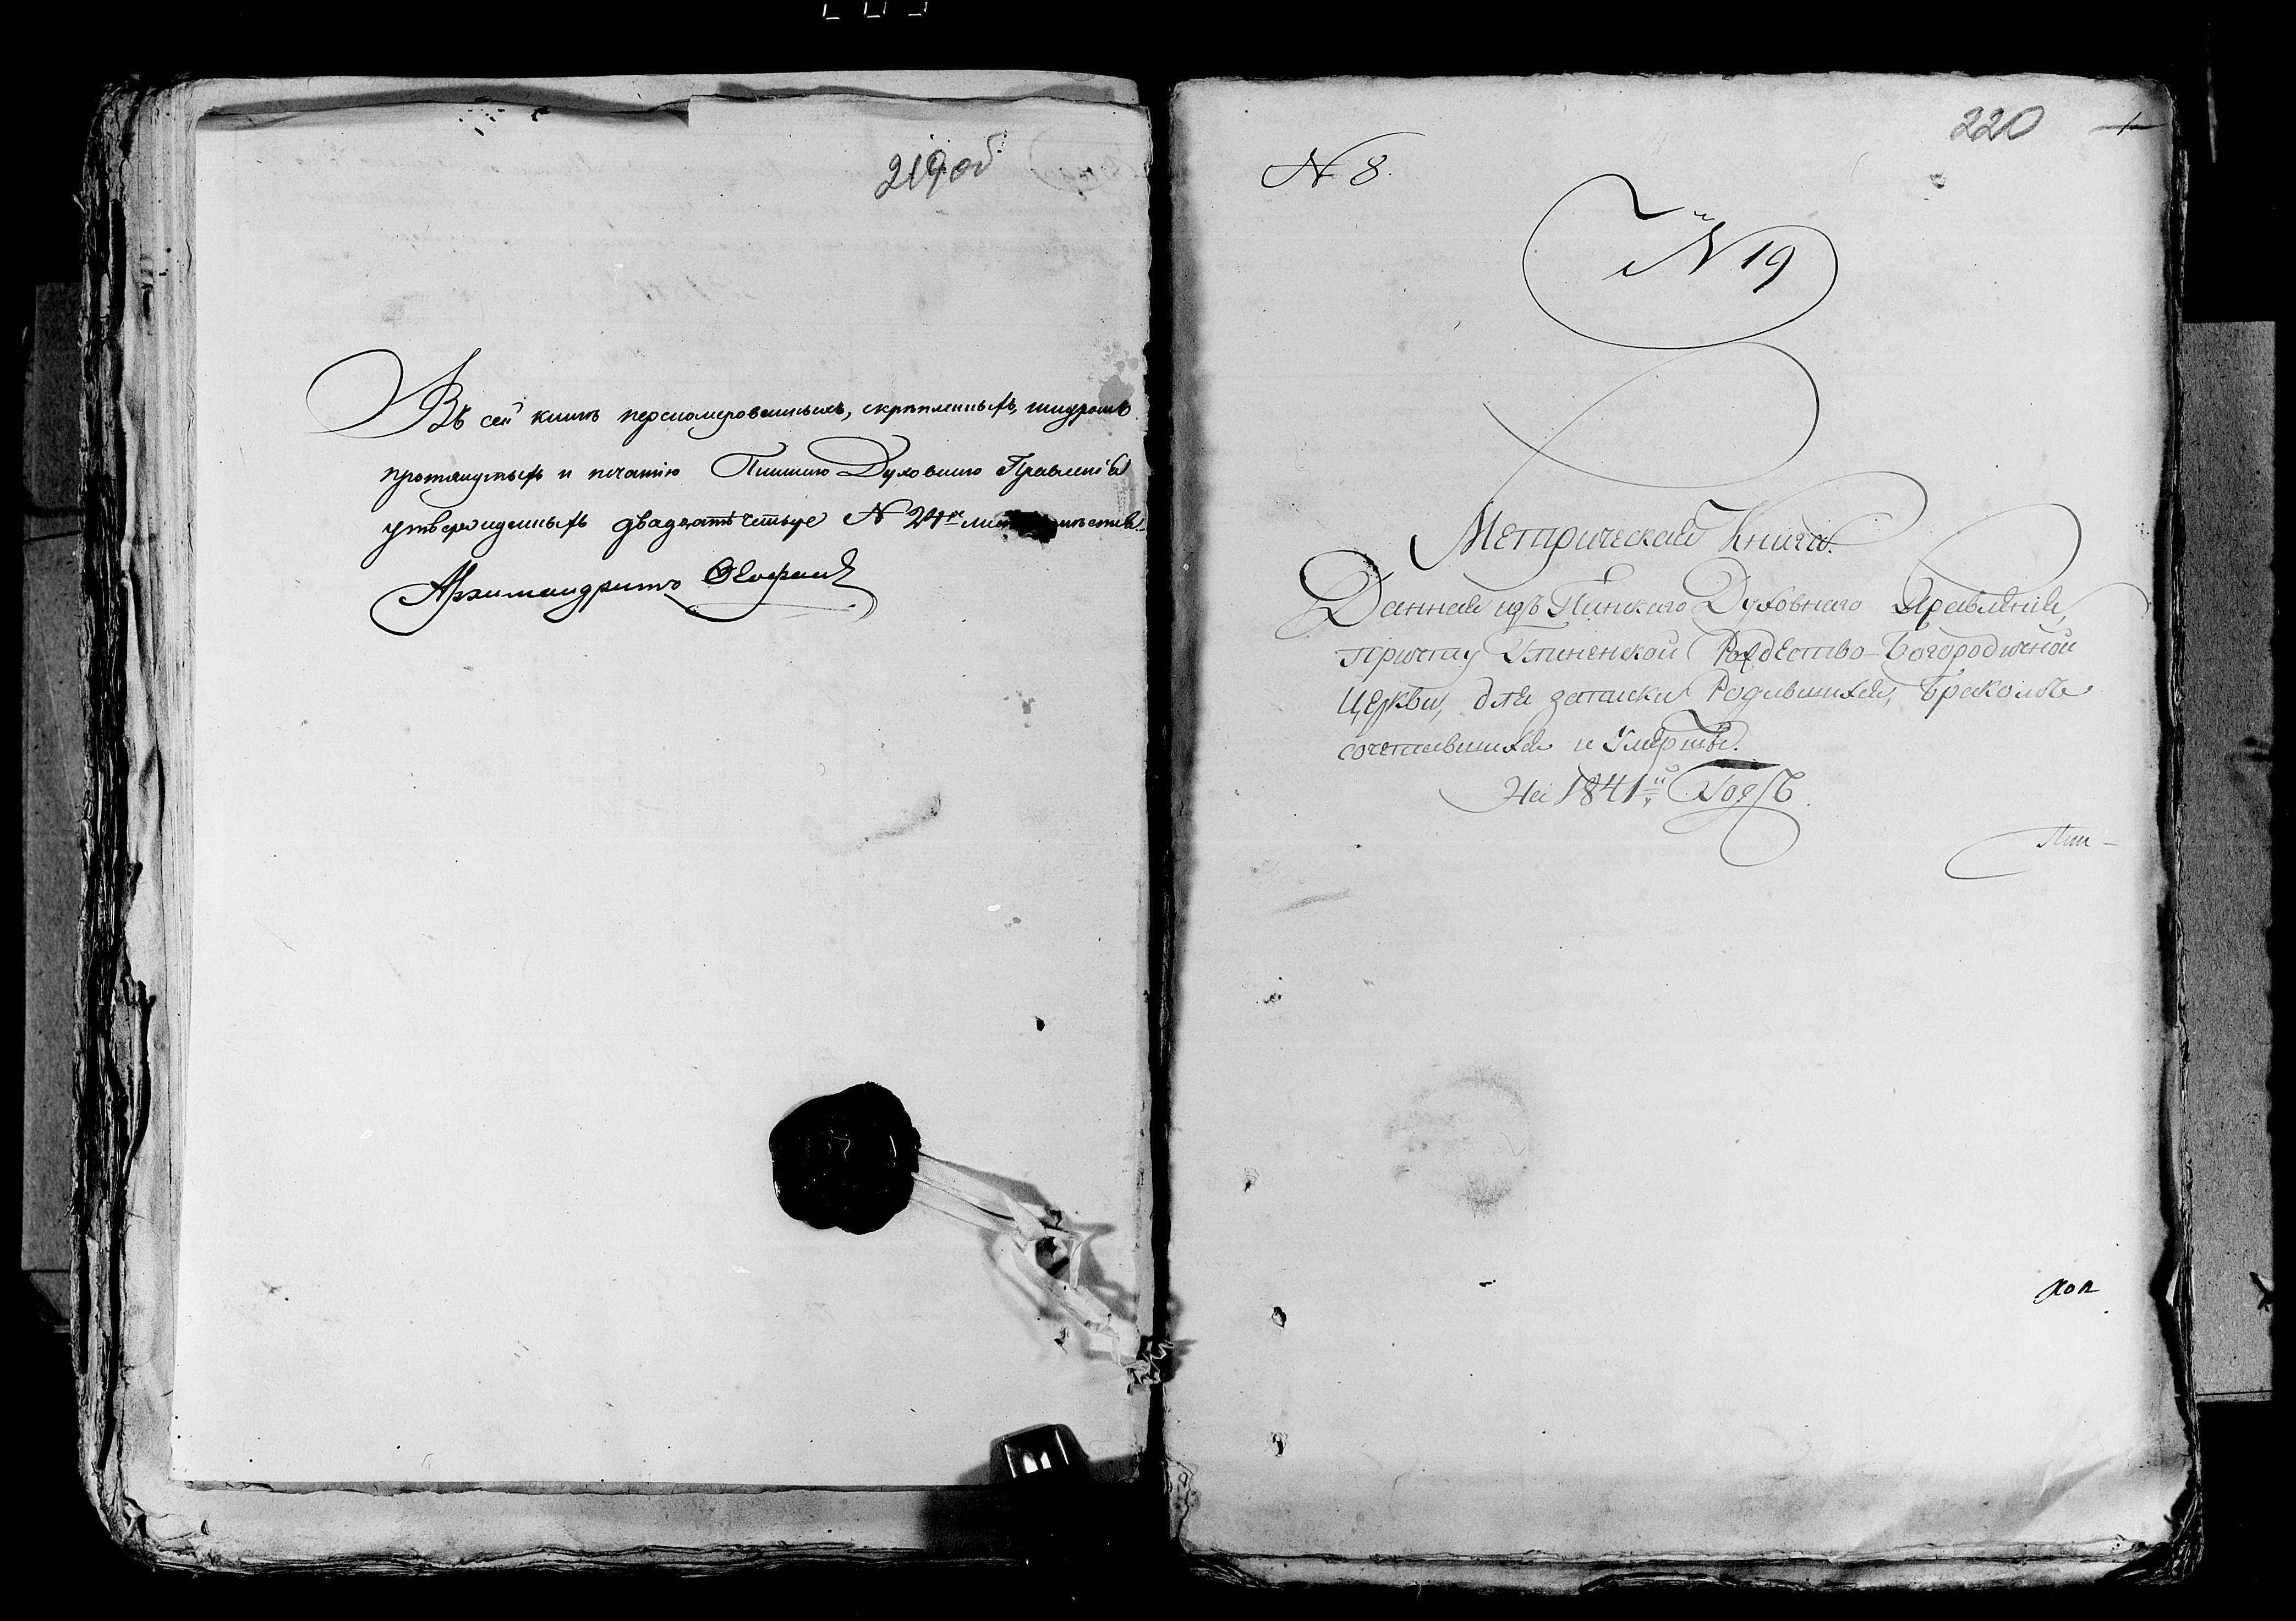 219 об
Въ сей книгѣ перенумерованныхъ, скрѣпленныхъ, шнуромъ
протянутыхъ и печатію Пинскаго Духовнаго Правленія
утвержденныхъ двадцать четыре № 24
Архимандритъ Ѳеофанъ
220
№ 8.
№ 19
Метрическая Книга.
Данная изъ Пинскаго Духовнаго Правленія,
причту Рождество-Богородичной
Церкви, для записки Родившихся, Бракомъ
сочетавшихся и Умершихъ.
На 1841й Годъ
Пин-